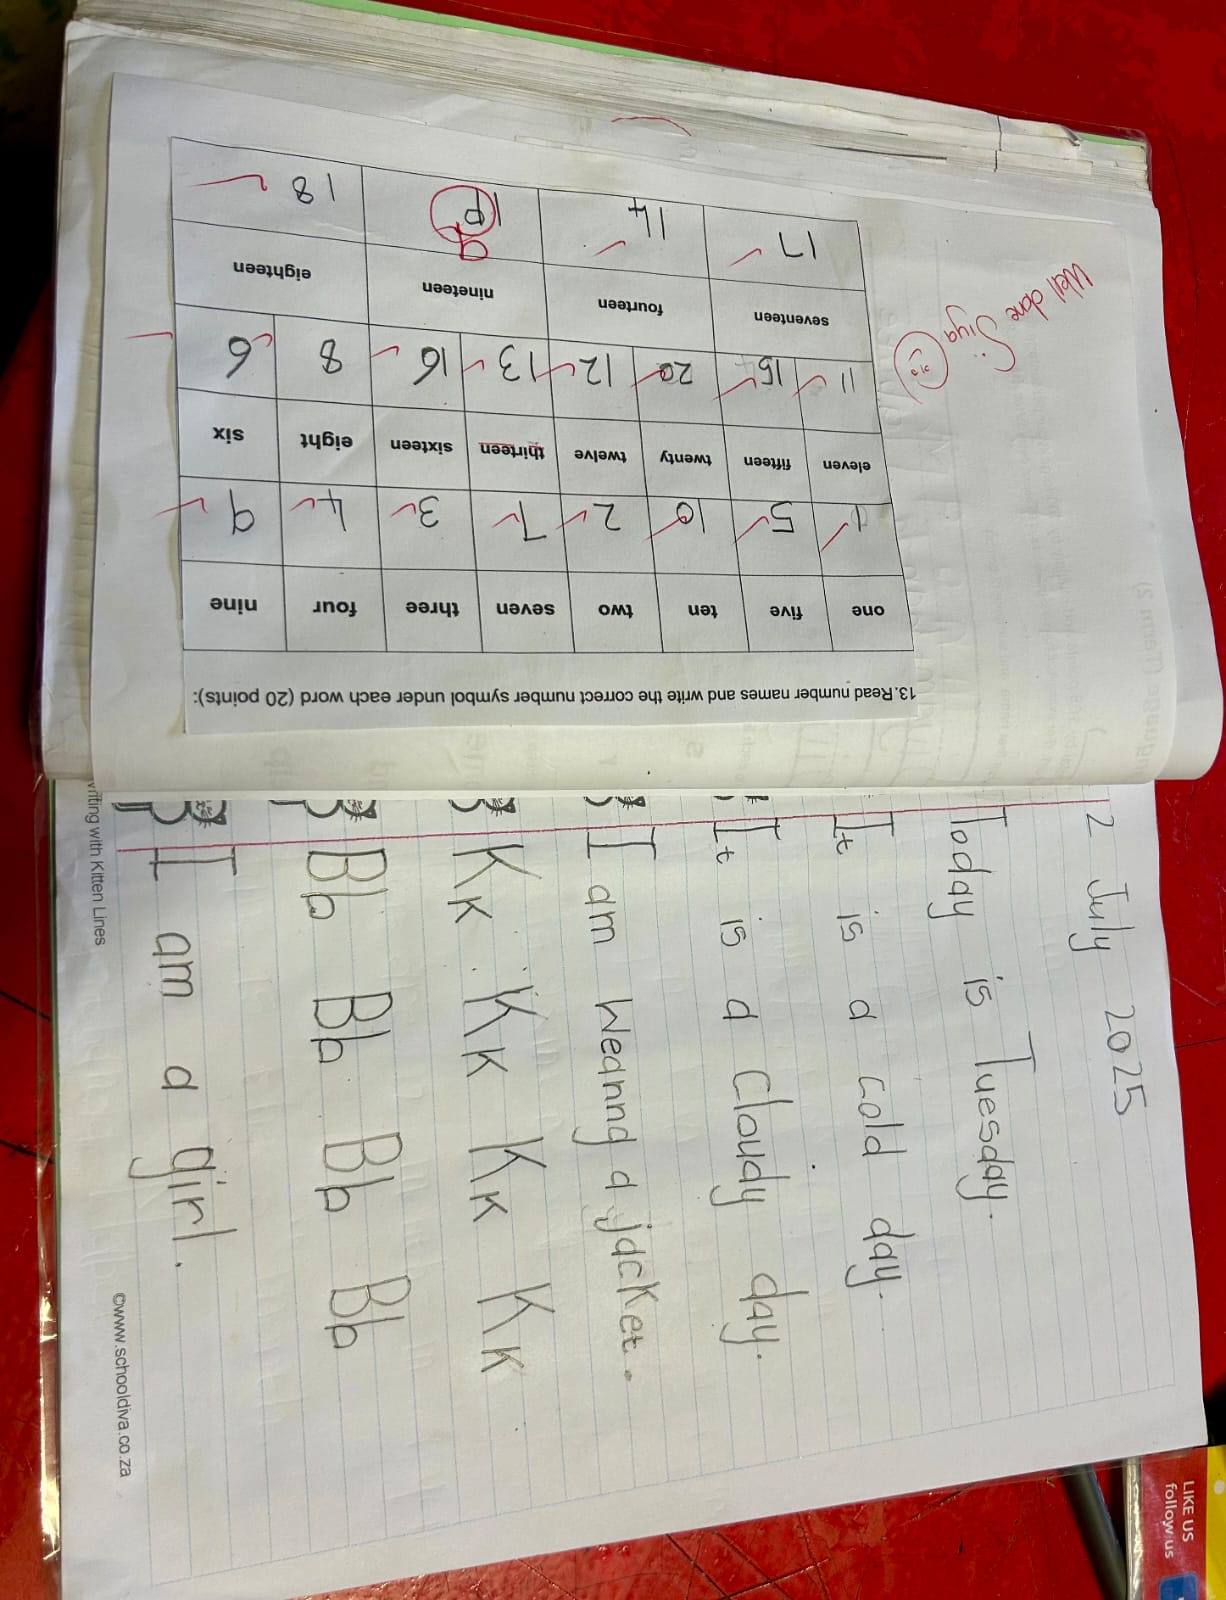 13.Read number names and write the correct number symbol under each word (20 points):
one five ten two seven three four nine
1 5 10 2 7 3 4 9
eleven fifteen twenty twelve thirteen sixteen eight six
11 15 20 12 13 16 8 6
seventeen fourteen nineteen eighteen
17 14 1p 18
9
Well done
Siya
2 July 2025
Today is Tuesday.
It is a cold day.
It is a Cloudy day.
I am Weannd a jacket.
Kk Kk Kk Kk
Bb Bb Bb Bb
I am a girl.
writing with Kitten Lines
©www.schooldiva.co.za
LIKE US
follow us